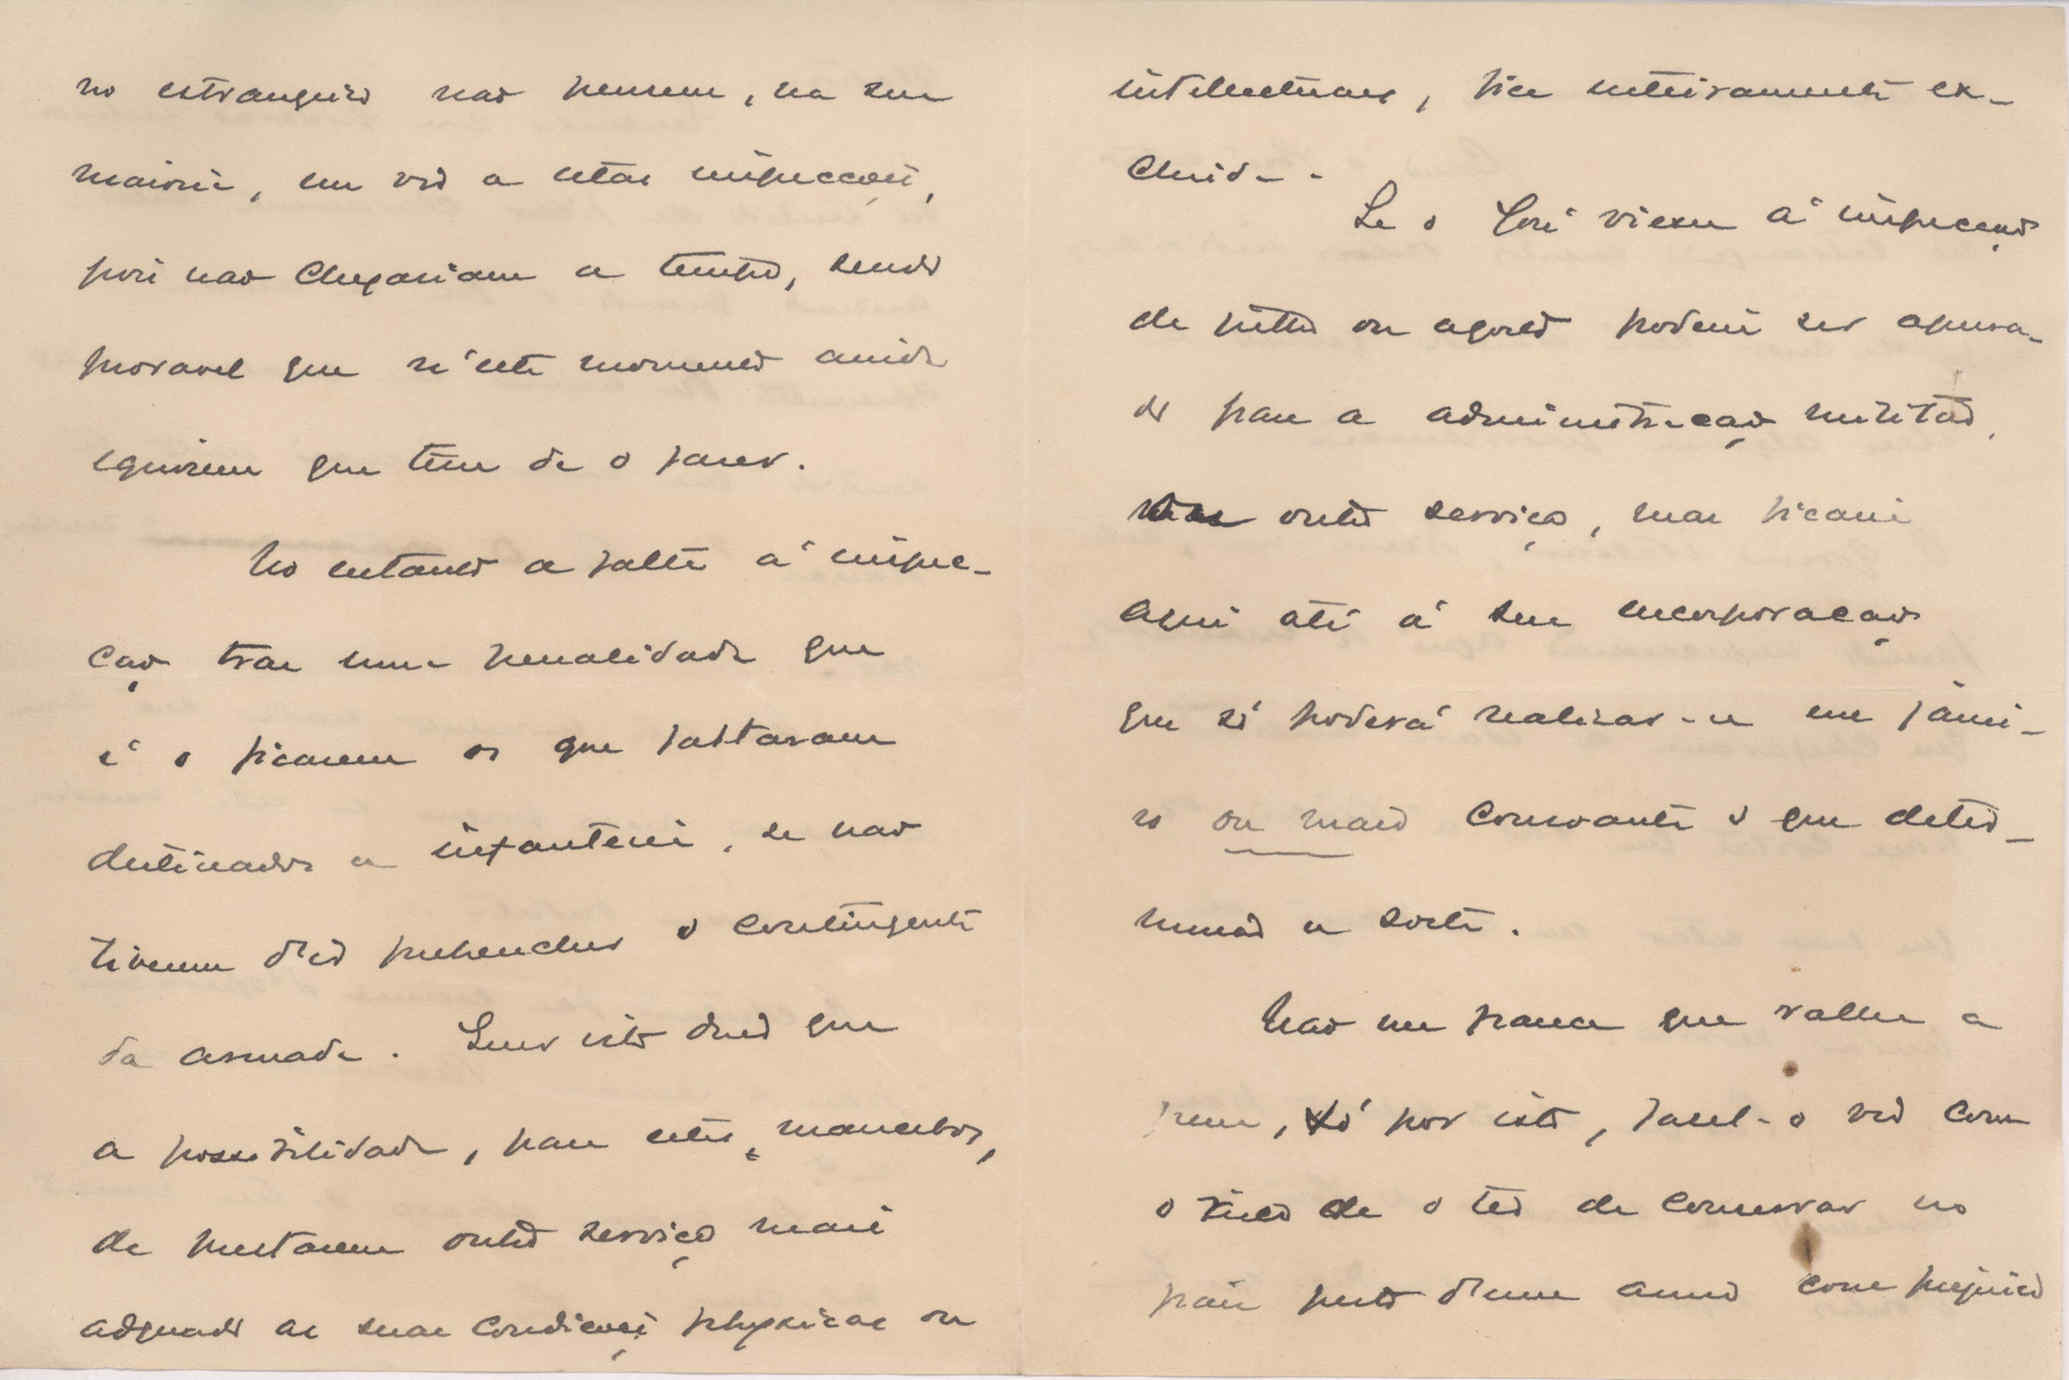 no estrangeiro não pensem, na sua
maioria, em vir a estas inspecções,
pois não chegariam a tempo, sendo
provavel que n'este momento ainda
ignorem que têm de o fazer.
No entanto a falta á inspec-
ção traz uma penalidade que
é o ficarem os que faltaram
destinados a infanteria, se não
tiverem d'ir prehencher o contingente
da armada. Quer isto dizer que
a possibilidade, para estes mancebos,
de prestarem outro serviço mais
adequado ás suas condicções physicas ou
intellectuaes, fica inteiramente ex-
cluida.
Se o José viesse á inspecção
de junto ou agosto poderia ser apura-
do para a administração militar,
outro serviço, mas ficaria
aqui até á sua encorporação
que só poderá realisar-se em janei-
ro ou maio consoante o que deter-
minar a sorte.
Não me parece que valha a
pena, só por isto, fazel-o vir com
o risco de o ter de conservar no
paiz perto d'um anno com prejuizo